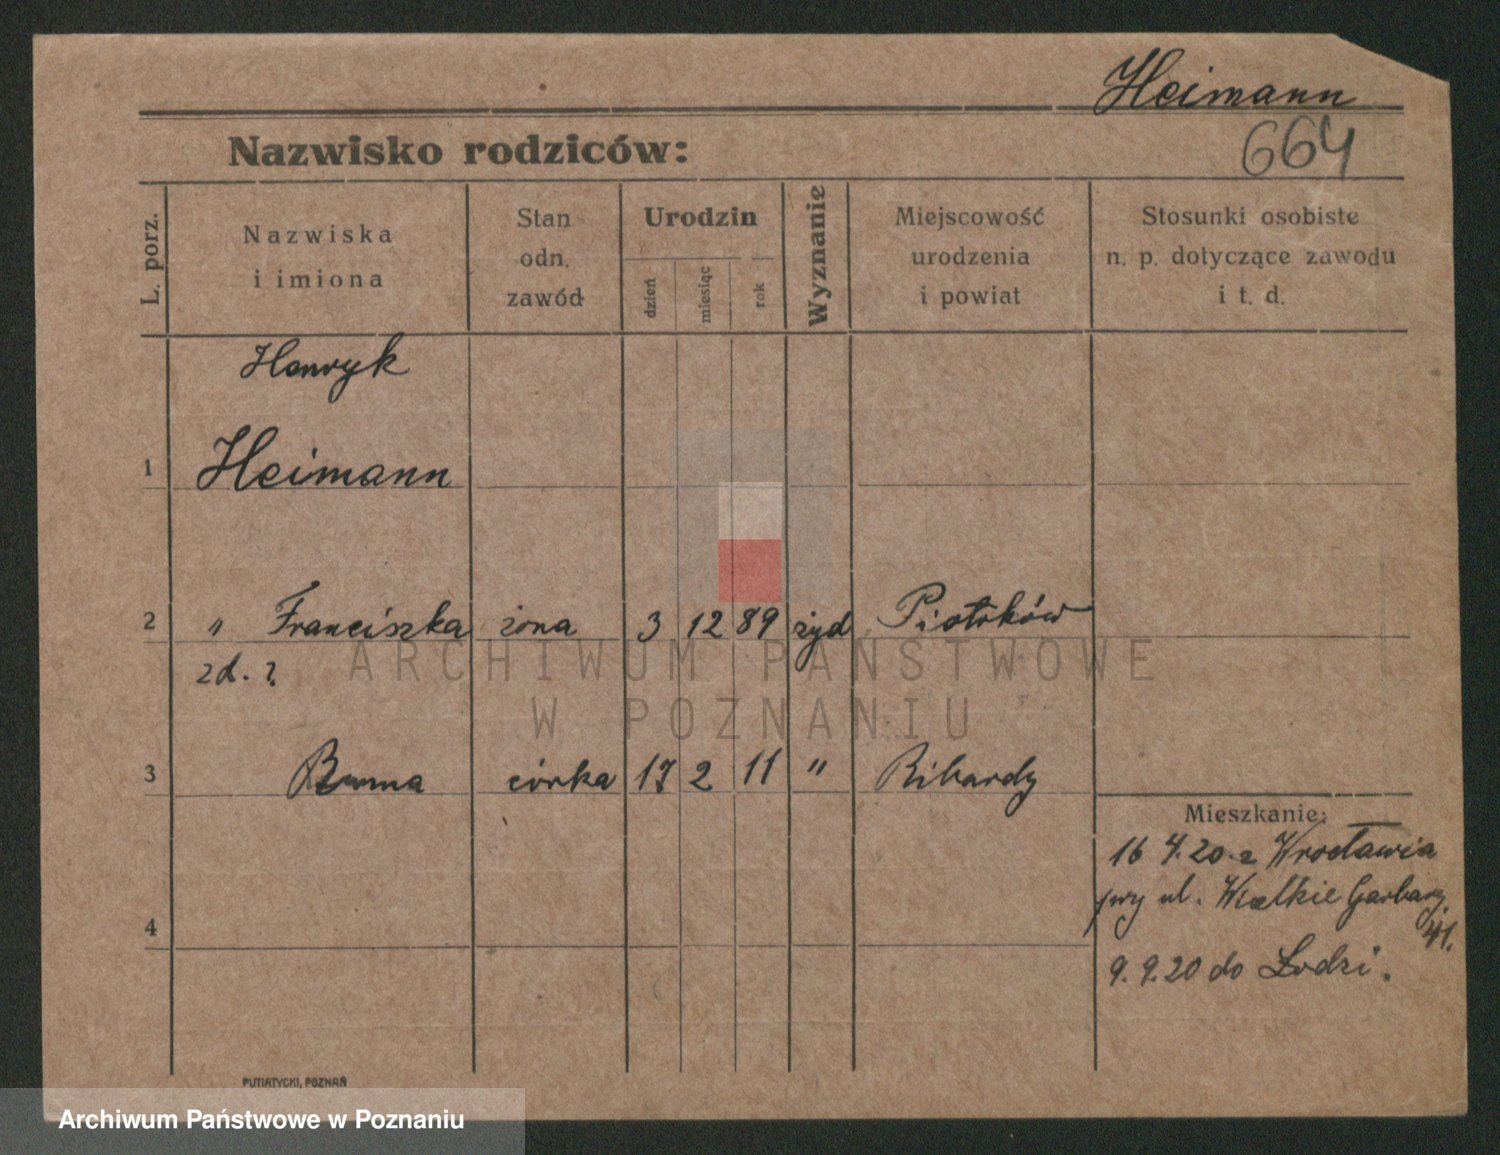 Heimann
664
Nazwisko rodziców:
L. porz.
Nazwiska
i imiona
Stan
odn.
zawód
Urodzin
dzień
miesiąc
rok
Wyznanie
Miejscowość
urodzenia
i powiat
Stosunki osobiste
n. p. dotyczące zawodu
i t. d.
Henryk
1 Heimann
2 " Franciszka żona 3 12 89 żyd Piotrków
zd. ?
3 córka 17 2 11 "
Mieszkanie:
16 4. 20. z Wrocławia
ul. Wielkie Garbary
41.
9. 9. 20 do Łodzi.
4
PUTIATYCKI, POZNAŃ
ARCHIWUM PAŃSTWOWE
W POZNANIU
Archiwum Państwowe w Poznaniu